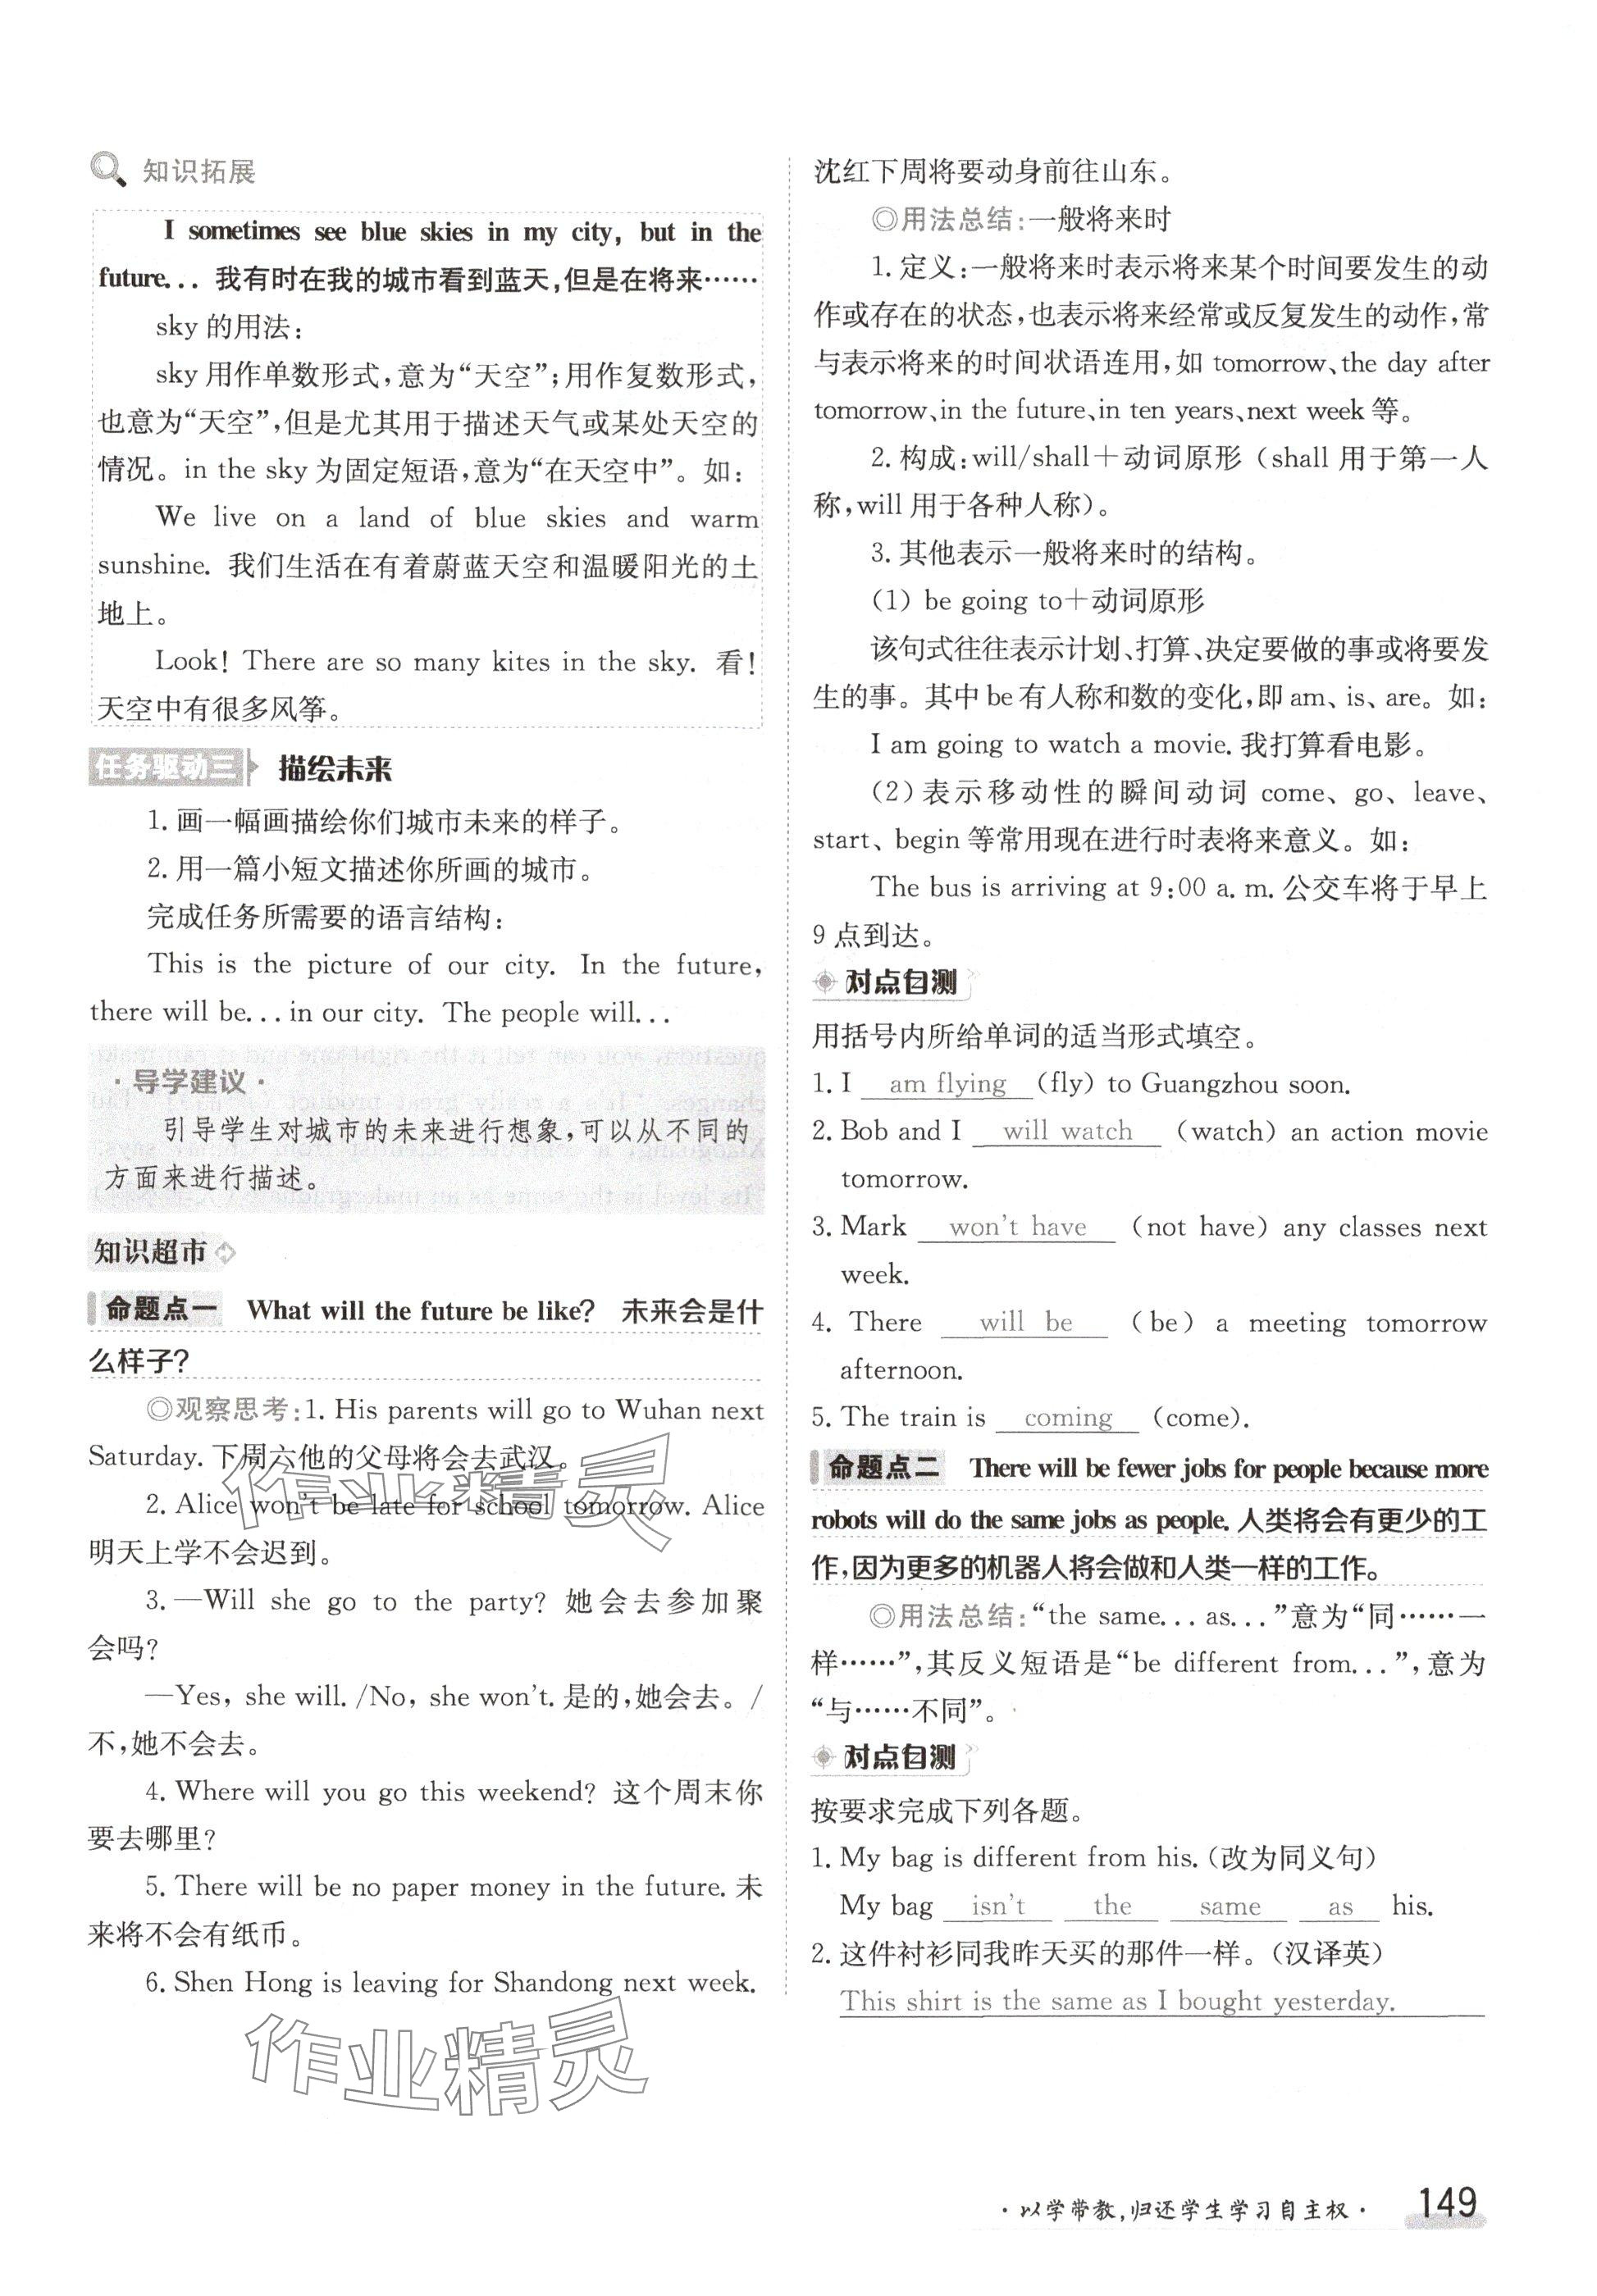 知识拓展
I sometimes see blue skies in my city, but in the
future... 我有时在我的城市看到蓝天,但是在将来……
sky 的用法:
sky 用作单数形式,意为“天空”;用作复数形式,
也意为“天空”,但是尤其用于描述天气或某处天空的
情况。in the sky 为固定短语,意为“在天空中”。如:
We live on a land of blue skies and warm
sunshine. 我们生活在有着蔚蓝天空和温暖阳光的土
地上。
Look! There are so many kites in the sky. 看!
天空中有很多风筝。
任务驱动三 描绘未来
1. 画一幅画描绘你们城市未来的样子。
2. 用一篇小短文描述你所画的城市。
完成任务所需要的语言结构:
This is the picture of our city. In the future,
there will be... in our city. The people will...
·导学建议·
引导学生对城市的未来进行想象,可以从不同的
方面来进行描述。
知识超市
命题点一 What will the future be like? 未来会是什
么样子?
◎观察思考:1. His parents will go to Wuhan next
Saturday. 下周六他的父母将会去武汉。
2. Alice won't be late for school tomorrow. Alice
明天上学不会迟到。
3. —Will she go to the party? 她会去参加聚
会吗?
—Yes, she will. /No, she won't. 是的,她会去。/
不,她不会去。
4. Where will you go this weekend? 这个周末你
要去哪里?
5. There will be no paper money in the future. 未
来将不会有纸币。
6. Shen Hong is leaving for Shandong next week.
作业精灵
作业精灵
沈红下周将要动身前往山东。
◎用法总结:一般将来时
1. 定义:一般将来时表示将来某个时间要发生的动
作或存在的状态,也表示将来经常或反复发生的动作,常
与表示将来的时间状语连用,如 tomorrow、the day after
tomorrow、in the future、in ten years、next week 等。
2. 构成:will/shall+动词原形(shall 用于第一人
称,will 用于各种人称)。
3. 其他表示一般将来时的结构。
(1) be going to+动词原形
该句式往往表示计划、打算、决定要做的事或将要发
生的事。其中 be 有人称和数的变化,即 am、is、are。如:
I am going to watch a movie. 我打算看电影。
(2) 表示移动性的瞬间动词 come、go、leave、
start、begin 等常用现在进行时表将来意义。如:
The bus is arriving at 9:00 a. m. 公交车将于早上
9 点到达。
对点自测
用括号内所给单词的适当形式填空。
1. I am flying (fly) to Guangzhou soon.
2. Bob and I will watch (watch) an action movie
tomorrow.
3. Mark won't have (not have) any classes next
week.
4. There will be (be) a meeting tomorrow
afternoon.
5. The train is coming (come).
命题点二 There will be fewer jobs for people because more
robots will do the same jobs as people. 人类将会有更少的工
作,因为更多的机器人将会做和人类一样的工作。
◎用法总结:“the same... as...”意为“同……一
样……”,其反义短语是“be different from...”,意为
“与……不同”。
对点自测
按要求完成下列各题。
1. My bag is different from his. (改为同义句)
My bag isn't the same as his.
2. 这件衬衫同我昨天买的那件一样。(汉译英)
This shirt is the same as I bought yesterday.
·以学带教,归还学生学习自主权· 149